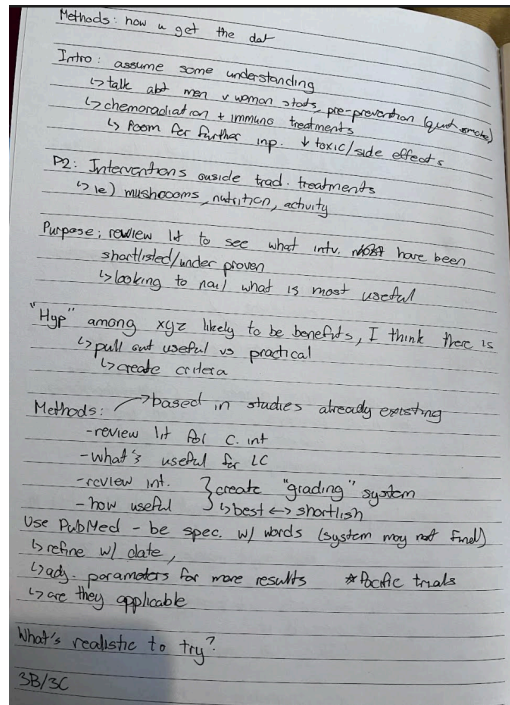 Methods: how u get the dat
Intro: assume some understanding
↳ talk abt men v woman stats, pre-prevention (quit smoke)
↳ chemoradiation + immuno treatments
↳ Room for further inp. ↓ toxic/side effects
P2: Interventions ouside trad. treatments
↳ ie) mushooms, nutrition, activity
Purpose: review lit to see what intv. have been
shortlisted/under proven
↳ looking to nail what is most useful
"Hyp" among xyz likely to be benefits, I think there is
↳ pull out useful vs practical
↳ create critera
Methods: → based in studies already existing
- review lit for C. int
- what's useful for LC
- review int. } create "grading" system
- how useful ↳ best ↔ shortlish
Use PubMed - be spec. w/ words (system may not find)
↳ refine w/ date,
↳ adj. parameters for more results * Pacific trials
↳ are they applicable
What's realistic to try?
3B/3C